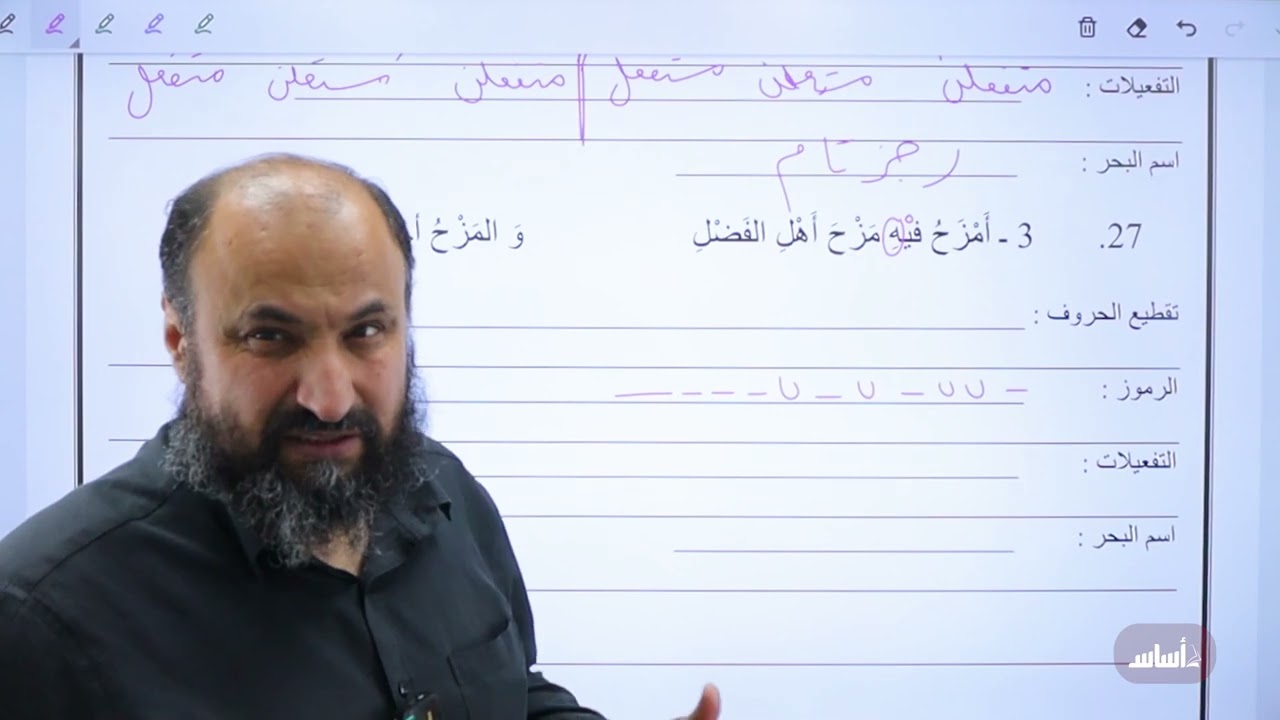 التفعيلات : متفعلن مستعلن مستفعل متفعلن مستفعلن متفعل
اسم البحر : رجز تام
27. 3 ـ أَمْزَحُ فيْهِ مَزْحَ أَهْلِ الفَضْلِ وَ المَزْحُ
تقطيع الحروف :
الرموز : – ں ں – ں – ں – – – –
التفعيلات :
اسم البحر :
أساس